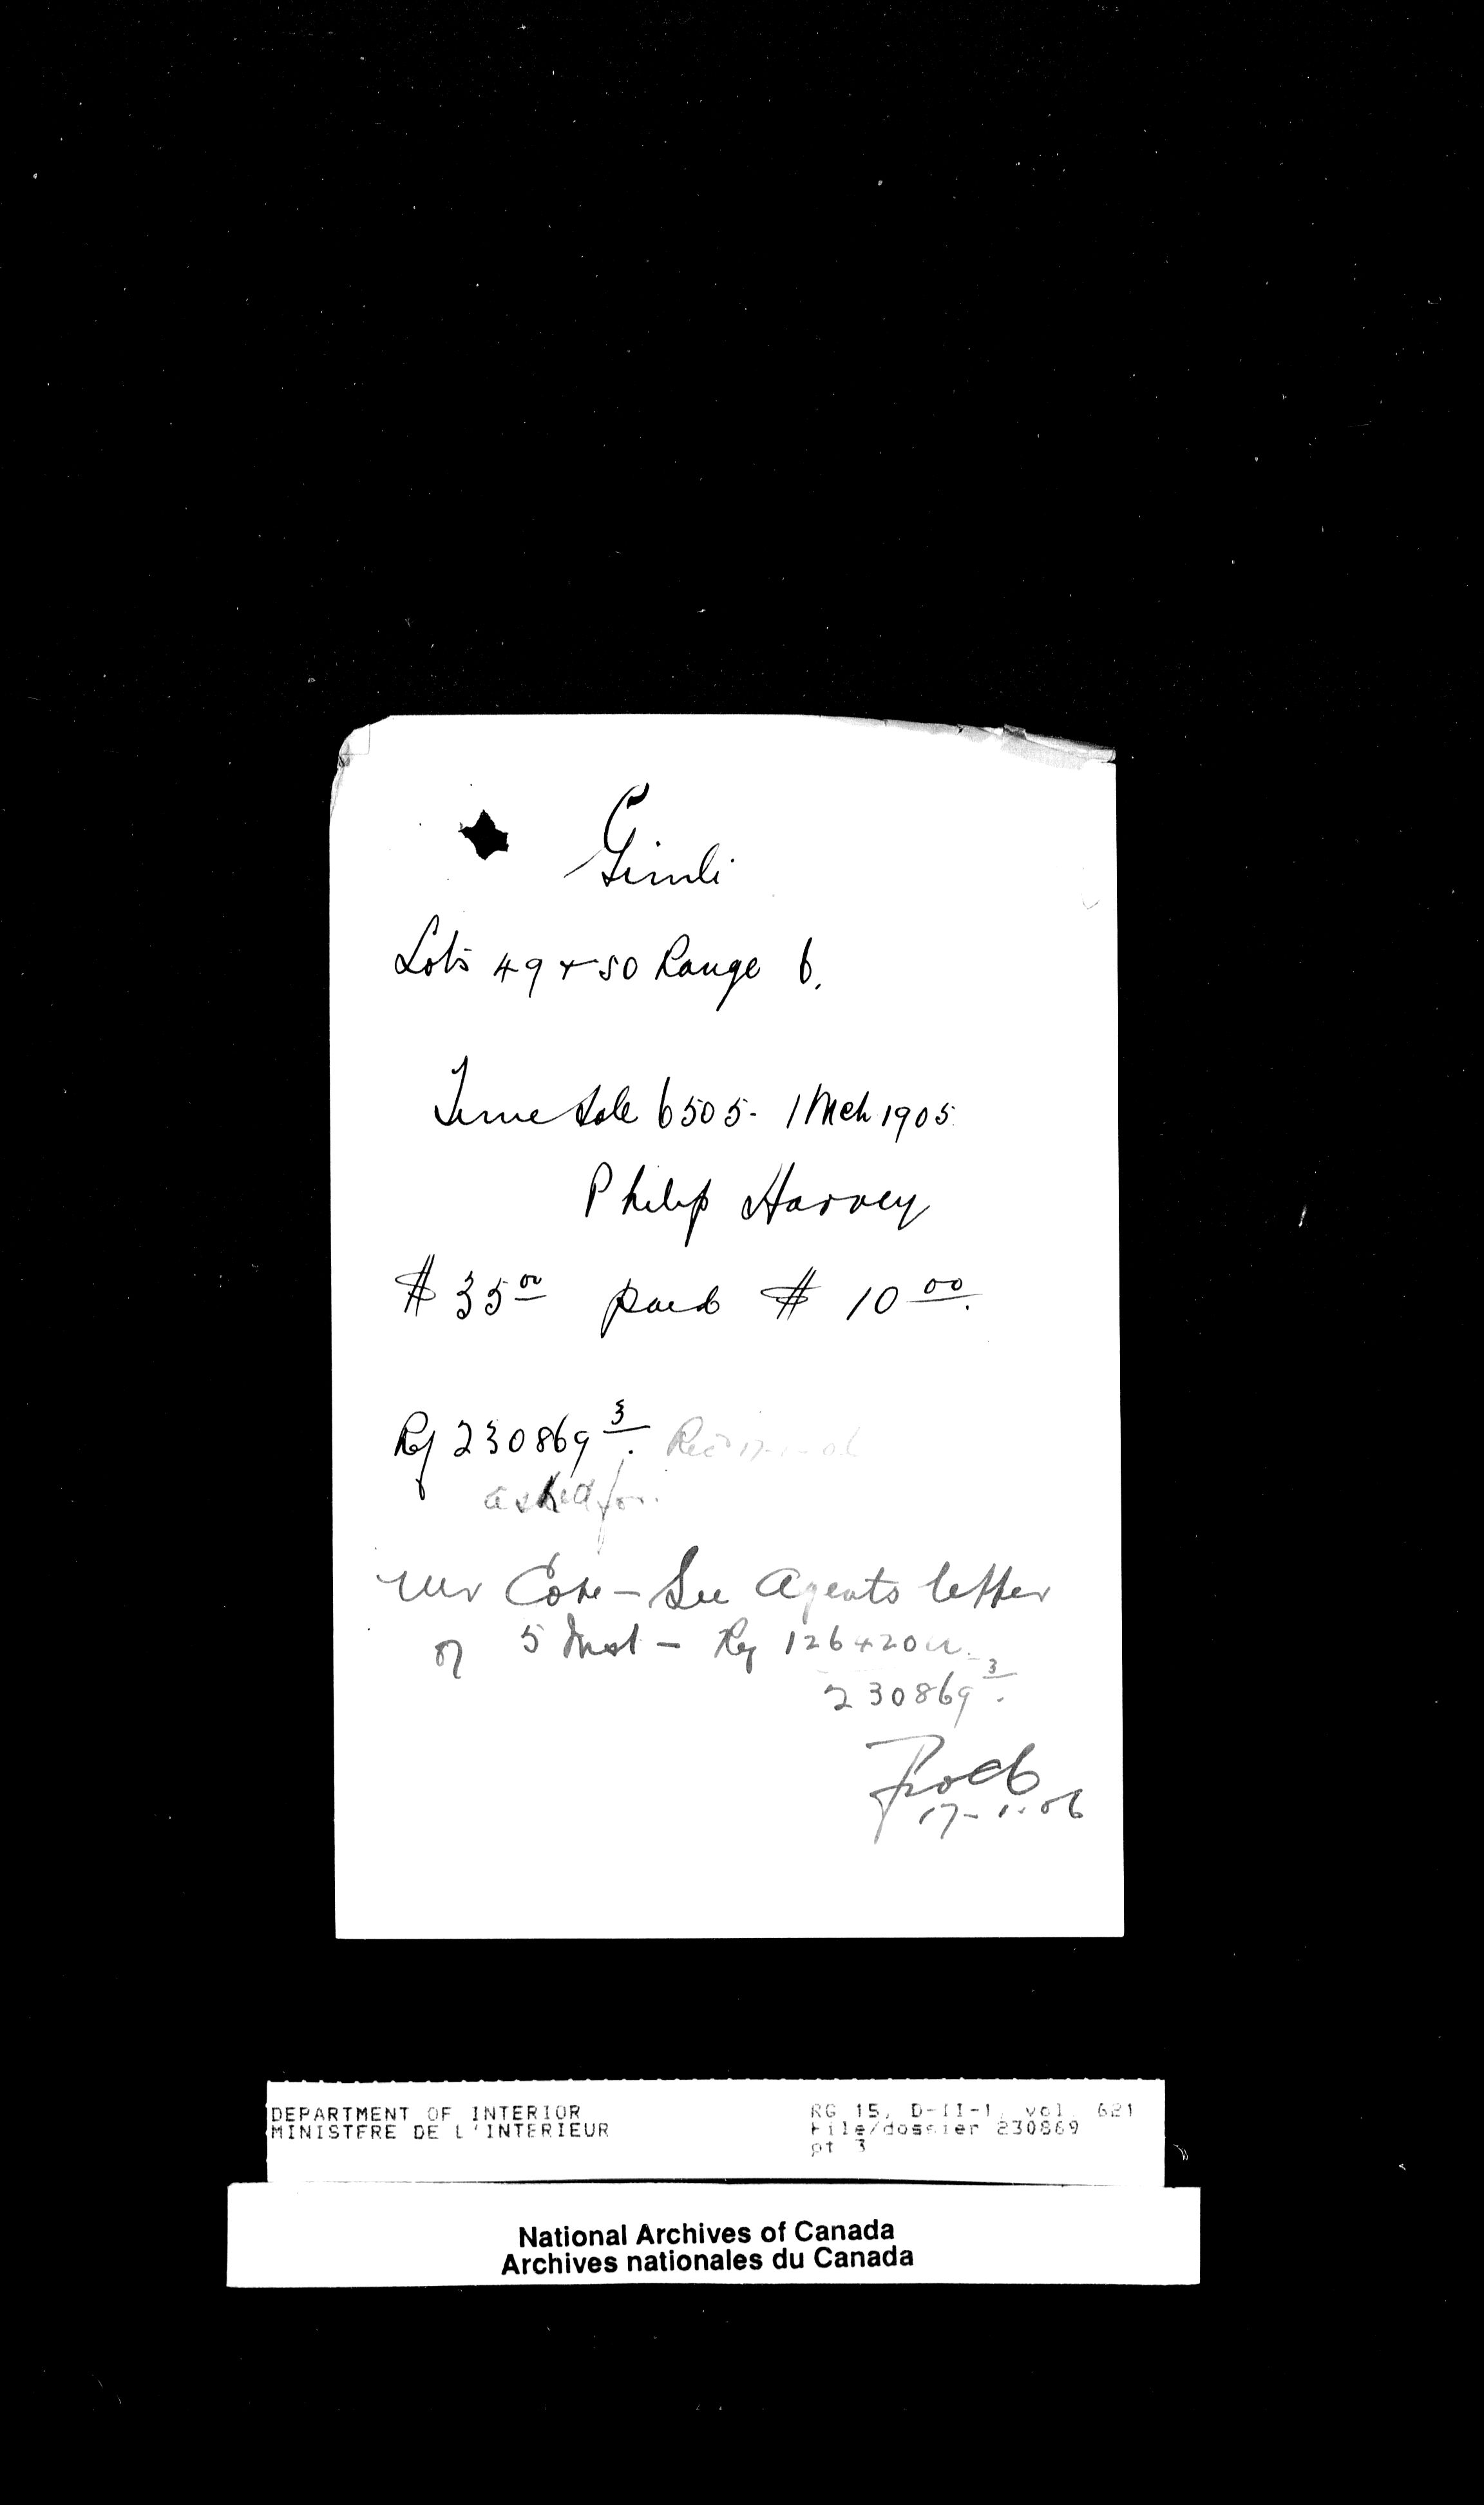 Gimli
Lots 49 + 50 Range 6.
Time Sale 6505 - 1 Mch 1905
Philip Harvey
$ 35 00 paid $ 10 00.
Ref 230869 3. Rec'd 17-1-06
asked for.
Mr Cote - See Agents letter
of 5 Inst - Ref 126420
230869 3.
17-1-06
DEPARTMENT OF INTERIOR
MINISTERE DE L'INTERIEUR
RG 15, D-II-1, vol 621
File/dossier 230869
pt 3
National Archives of Canada
Archives nationales du Canada